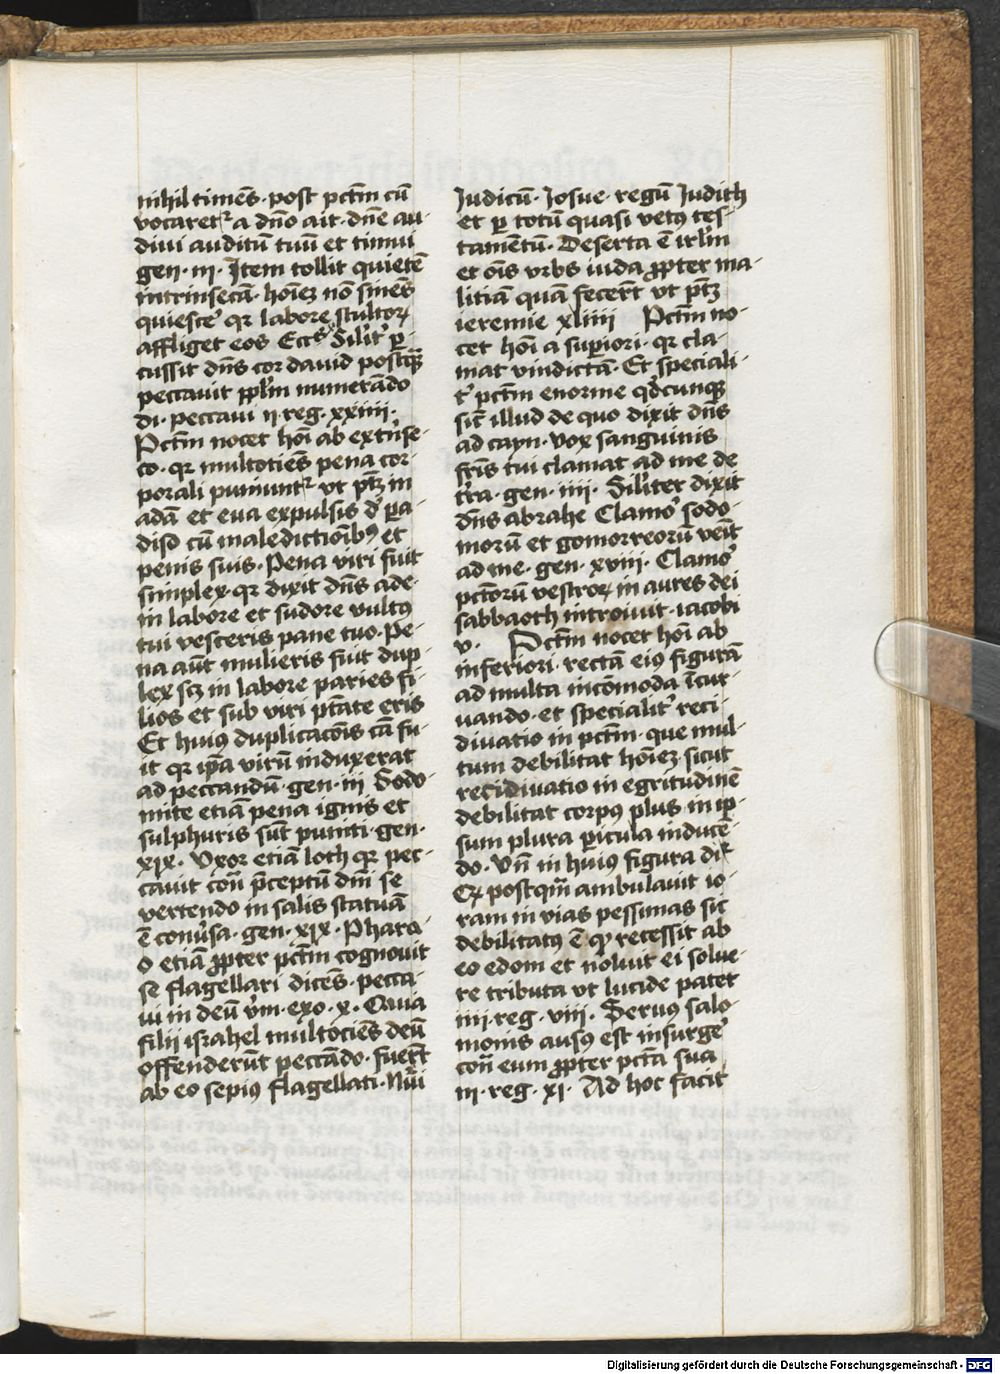 nihil timēs · post pctm̄ cū
vocaret᷑ a dn̄o ait · dn̄e au-
diui auditū tuū et timui
gen · iii · Item tollit quietē
intrinsecā · hoīeʒ nō sinēs
quiesce᷑ qr labore stultoꝝ
affliget eos Eccs̄ Silīt᷑ ꝑ-
cussit dn̄s cor dauid postq̄ꝫ
peccauit ppl̄m numerādo
di · peccaui ii · reg · xxiiii ·
Pctm̄ nocet hoī ab extn̄se-
co · qr multotiēs pena cor-
porali puniunt᷑ vt ptʒ in
adā et eua expulsis d᷑ ꝑa-
diso cū maledictoībꝰ et
penis suis · Pena viri fuit
simplex · qr dixit dn̄s ade ·
in labore et sudore vultꝰ
tui vesceris pane tuo · Pe-
na aūt mulieris fuit dup-
lex scʒ in labore paries fi-
lios et sub viri ptāte eris
Et huiꝰ duplicacōis cā fu-
it qr ip̄a virū induxerat
ad peccandū · gen · iii Sodo-
mite etiā pena ignis et
sulphuris sūt puniti · gen ·
xix · Vxor etiā loth qr pec-
cauit con̄ p̄ceptū dn̄i se
vertendo in salis statuā
ē conūsa · gen · xix · Phara-
o etiā ꝓpter pctm̄ cognouit
se flagellari dicēs · pecca-
ui in deū vr̄m · exo · x · Quia
filii israhel multociēs deū
offenderūt peccādo · fuerūt
ab eo sepiꝰ flagellati · Nūi
Iudicū · Iosue · regū Iudith
et ꝑ totū quasi vetꝰ tes-
tamētū · Deserta ē irl̄m
et oīs vrbs iuda ꝓpter ma-
litiā quā fecerūt vt ptʒ
ieremie xliiii Pctm̄ no-
cet hoī a superiori · qr cla-
mat vindictā · Et speciali-
t᷑ pctm̄ enorme qd̄cunqꝫ
sit illud de quo dixit dn̄s
ad cayn · vox sanguinis
fr̄is tui clamat ad me de
t᷑ra · gen · iiii · Siliter dixit
dn̄s abrahe Clamo᷑ sodo-
morū et gomorreorū veīt
ad me · gen · xviii · Clamo᷑
pctorū vestroꝝ in aures dei
sabbaoth introiuit · iacobi
v · Pctm̄ nocet hoī ab
inferiori · rectā eiꝰ figurā
ad multa incōmoda īcur-
uando · et specialit᷑ reci-
diuatio in pctm̄ · que mul-
tum debilitat hoīeʒ · sicut
recidiuatio in egritudinē
debilitat corpꝰ plus · in ip-
sum plura ꝑicula inducē-
do · Vn̄ in huiꝰ figura di᷑
postqm̄ ambulauit io-
ram in vias pessimas sic
debilitatꝰ ē qꝫ recessit ab
eo edom et noluit ei solue-
re tributa vt lucide patet
iiii · reg · viii · Seruꝰ salo-
monis ausꝰ est insurge᷑
con̄ eum ꝓpter pctā sua
iii · reg · xi · Ad hoc facit
Digitalisierung gefördert durch die Deutsche Forschungsgemeinschaft - DFG